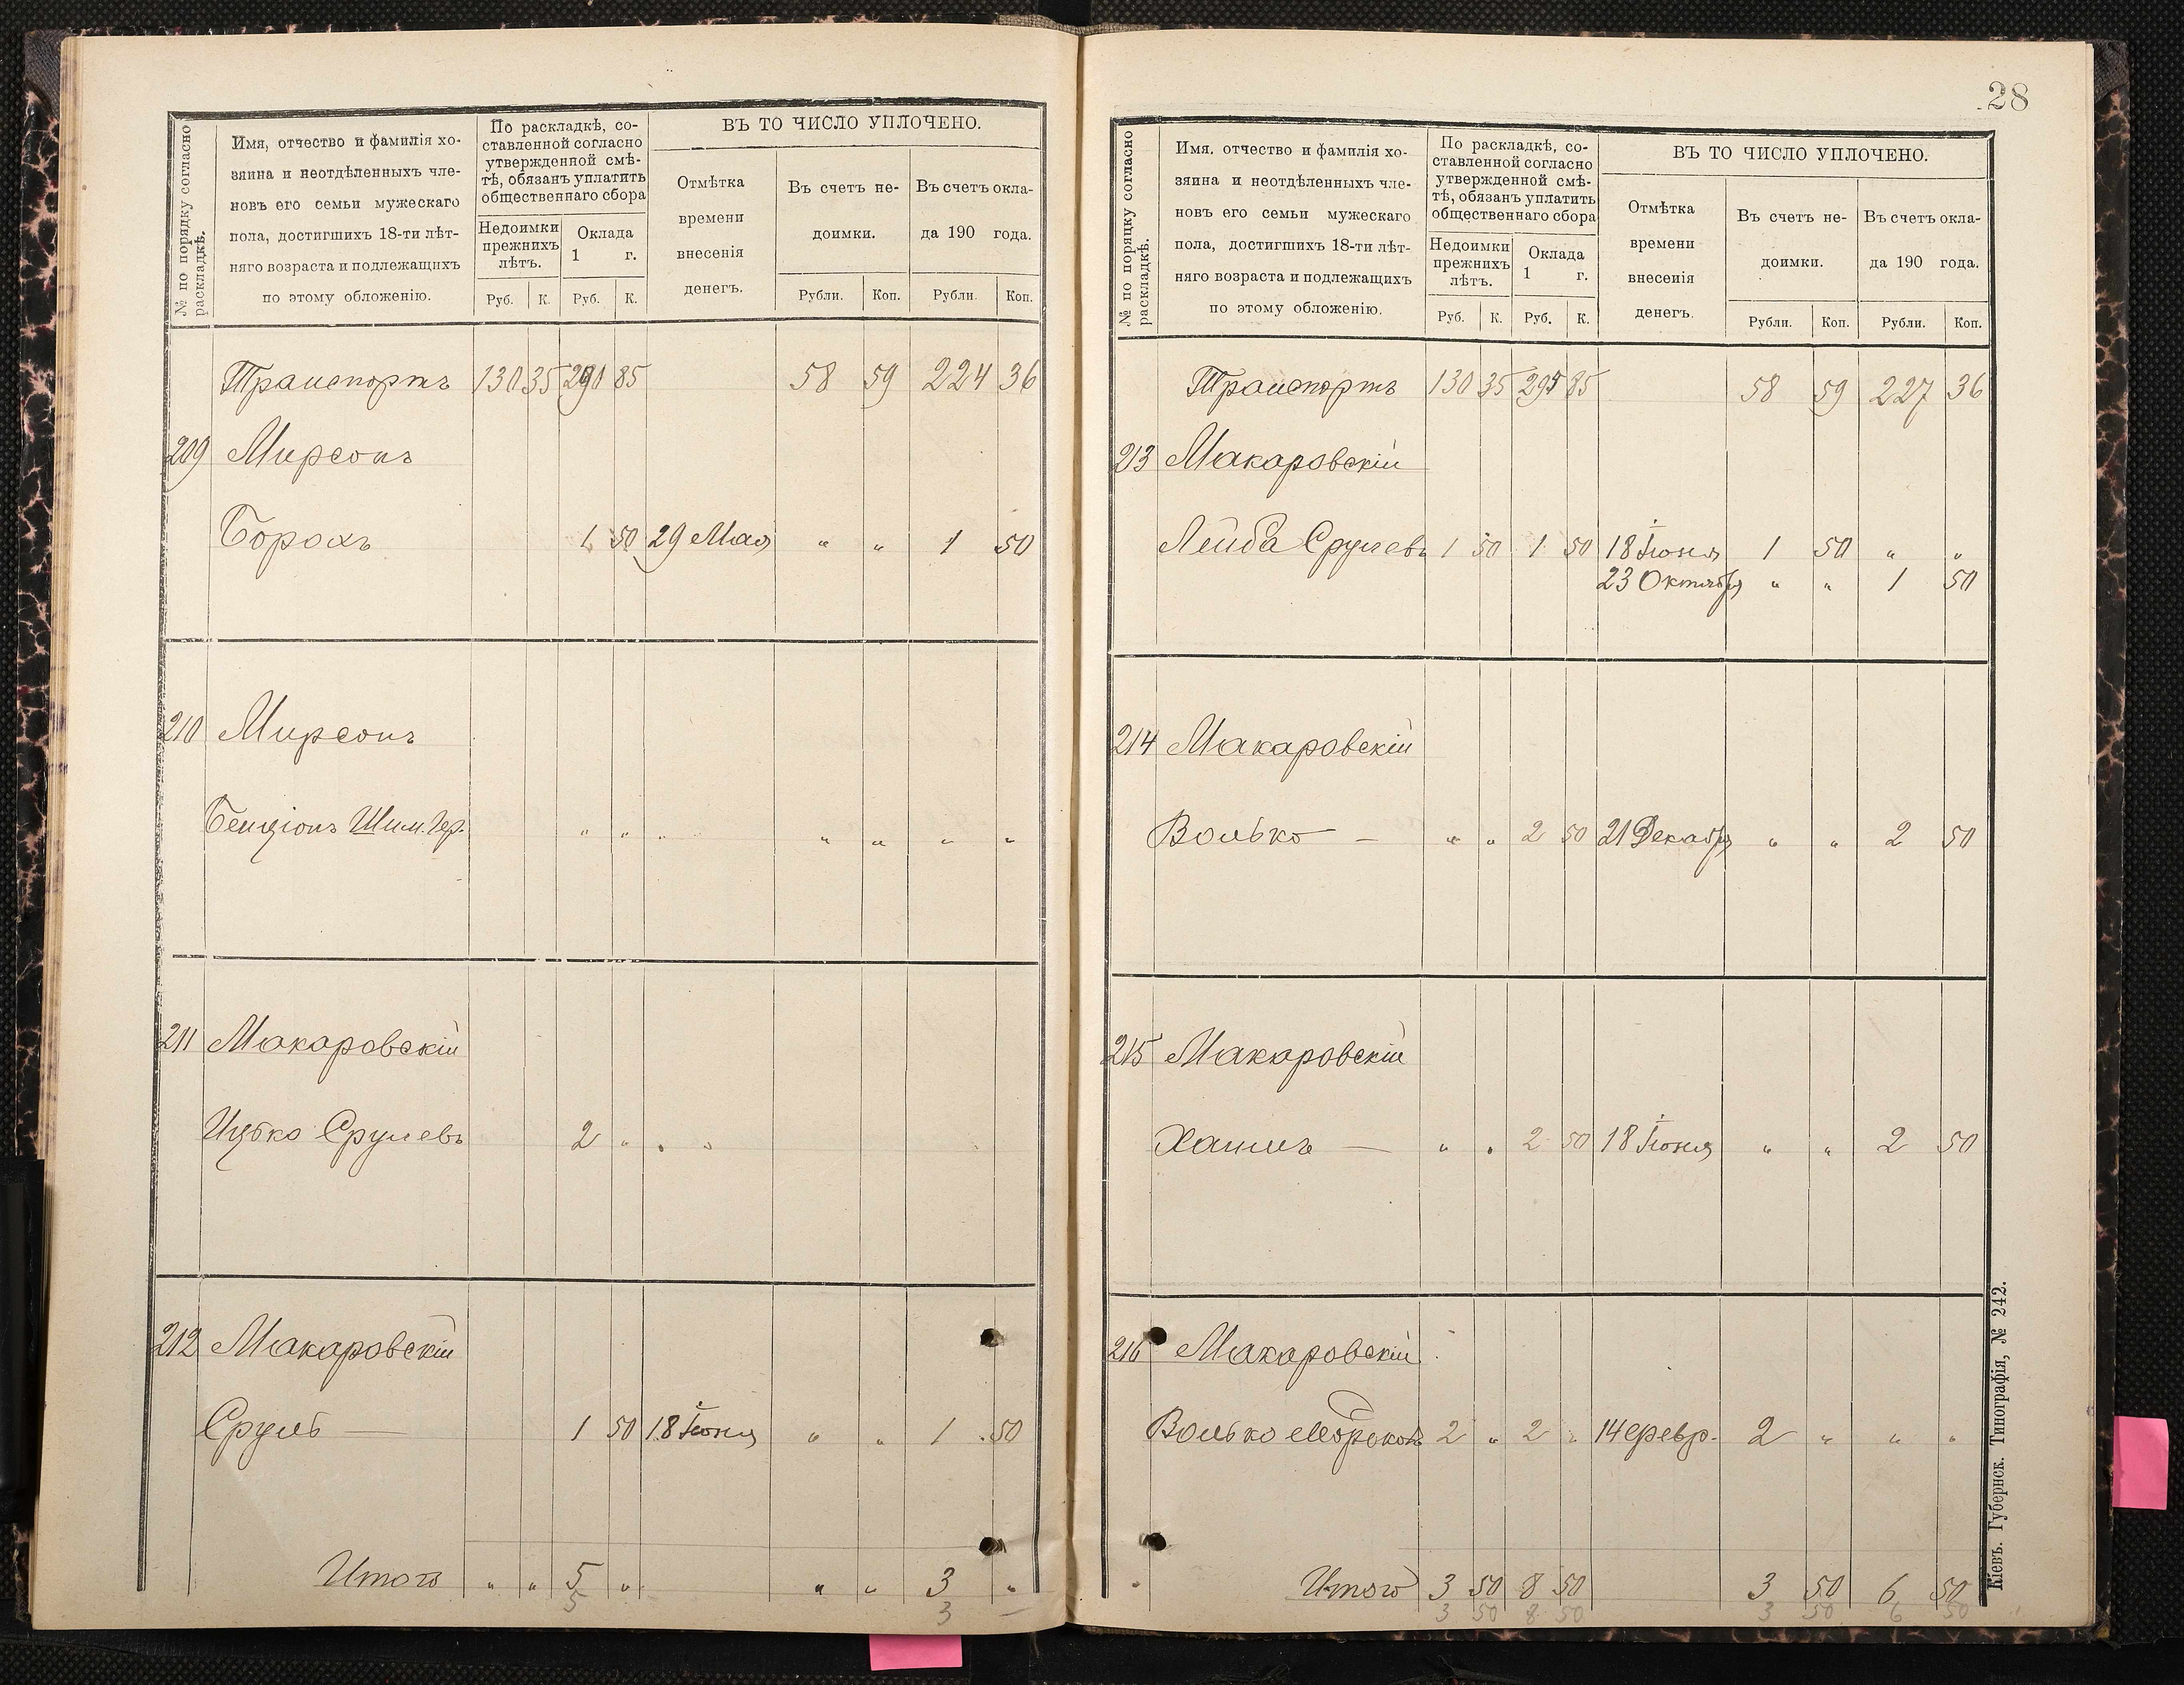 № по порядку согласно
раскладкѣ.
Имя, отчество и фамилія хо-
зяина и неотдѣленныхъ чле-
новъ его семьи мужескаго
пола, достигшихъ 18-ти лѣт-
няго возраста и подлежащихъ
по этому обложенію.
По раскладкѣ, со-
ставленной согласно
утвержденной смѣ-
тѣ, обязанъ уплатить
общественнаго сбора
Недоимки
прежнихъ
лѣтъ.
Оклада
1 г.
Руб. К. Руб. К.
ВЪ ТО ЧИСЛО УПЛОЧЕНО.
Отмѣтка
времени
внесенія
денегъ.
Въ счетъ не-
доимки.
Въ счетъ окла-
да 190 года.
Рубли. Коп. Рубли. Коп.
Транспортъ 130 35 290 85 58 59 224 36
209 Мирсонъ
Борохъ 1 50 29 Мая " " 1 50
210 Мирсонъ
Бенціонъ Шим. Гер. " " " " " " "
211 Макаровскій
Ицько Срулевъ 2 " " "
212 Макаровскій
Сруль — 1 50 18 Іюня " " 1 50
Итого " " 5 " " " 3 "
5 3 —
28
№ по порядку согласно
раскладкѣ.
Имя. отчество и фамилія хо-
зяина и неотдѣленныхъ чле-
новъ его семьи мужескаго
пола, достигшихъ 18-ти лѣт-
няго возраста и подлежащихъ
по этому обложенію.
По раскладкѣ, со-
ставленной согласно
утвержденной смѣ-
тѣ, обязанъ уплатить
общественнаго сбора
Недоимки
прежнихъ
лѣтъ.
Оклада
1 г.
Руб. К. Руб. К.
ВЪ ТО ЧИСЛО УПЛОЧЕНО.
Отмѣтка
времени
внесенія
денегъ.
Въ счетъ не-
доимки.
Въ счетъ окла-
да 190 года.
Рубли. Коп. Рубли. Коп.
Транспортъ 130 35 295 85 58 59 227 36
213 Макаровскій
Лейба Срулевъ 1 50 1 50 18 Іюня 1 50 " "
23 Октября " " 1 50
214 Макаровскій
Волько — " " 2 50 21 Декабря " " 2 50
215 Макаровскій
Хаимъ — " " 2 50 18 Іюня " " 2 50
216 Макаровскій
Волько 2 " 2 " 14 февр. 2 " " "
Итого 3 50 8 50 3 50 6 50
3 50 8 50 3 50 6 50
Кіевъ. Губернск. Типографія, № 242.